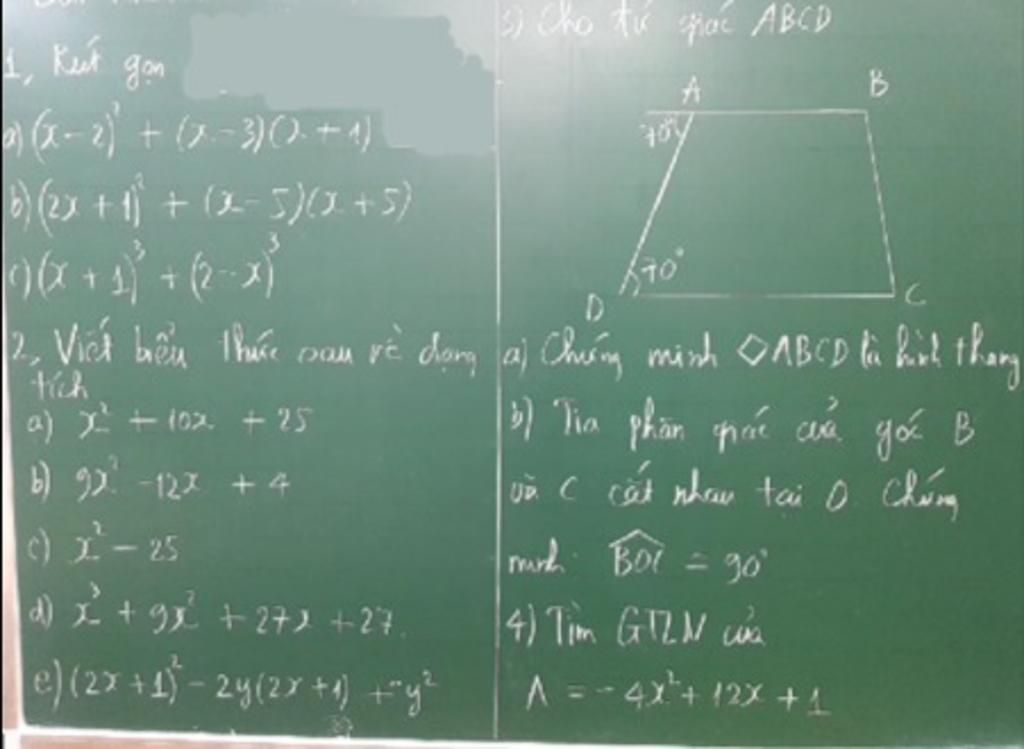 1, Rút gọn
a) (x-2)² + (x-3)(x+1)
b) (2x+1)² + (x-5)(x+5)
c) (x+1)³ + (2-x)³
2, Viết biểu thức sau về dạng
tích
a) x² + 10x + 25
b) 9x² - 12x + 4
c) x² - 25
d) x³ + 9x² + 27x + 27.
e) (2x+1)² - 2y(2x+1) + y²
3) Cho tứ giác ABCD
A
B
70°
70°
D
C
a) Chứng minh ◇ABCD là hình thang
b) Tia phân giác của góc B
và C cắt nhau tại O. Chứng
minh: \widehat{BOC} = 90°
4) Tìm GTLN của
A = -4x² + 12x + 1